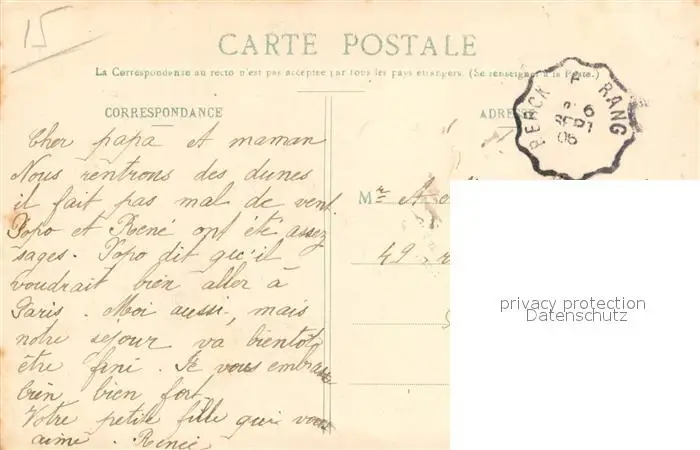 15
CARTE POSTALE
La Correspondance au recto n'est pas acceptée par tous les pays étrangers. (Se renseigner à la Poste.)
CORRESPONDANCE
ADRES
BERCK RANG
6
SEPT
06
Cher papa et maman
Nous rentrons des dunes
il fait pas mal de vent.
Popo et René ont été assez
sages. Popo dit qu'il
voudrait bien aller à
Paris. Moi aussi, mais
notre séjour va bientôt
être fini. Je vous embrasse
bien bien fort.
Votre petite fille qui vous
aime. Renée
Mr A
49, r
privacy protection
Datenschutz